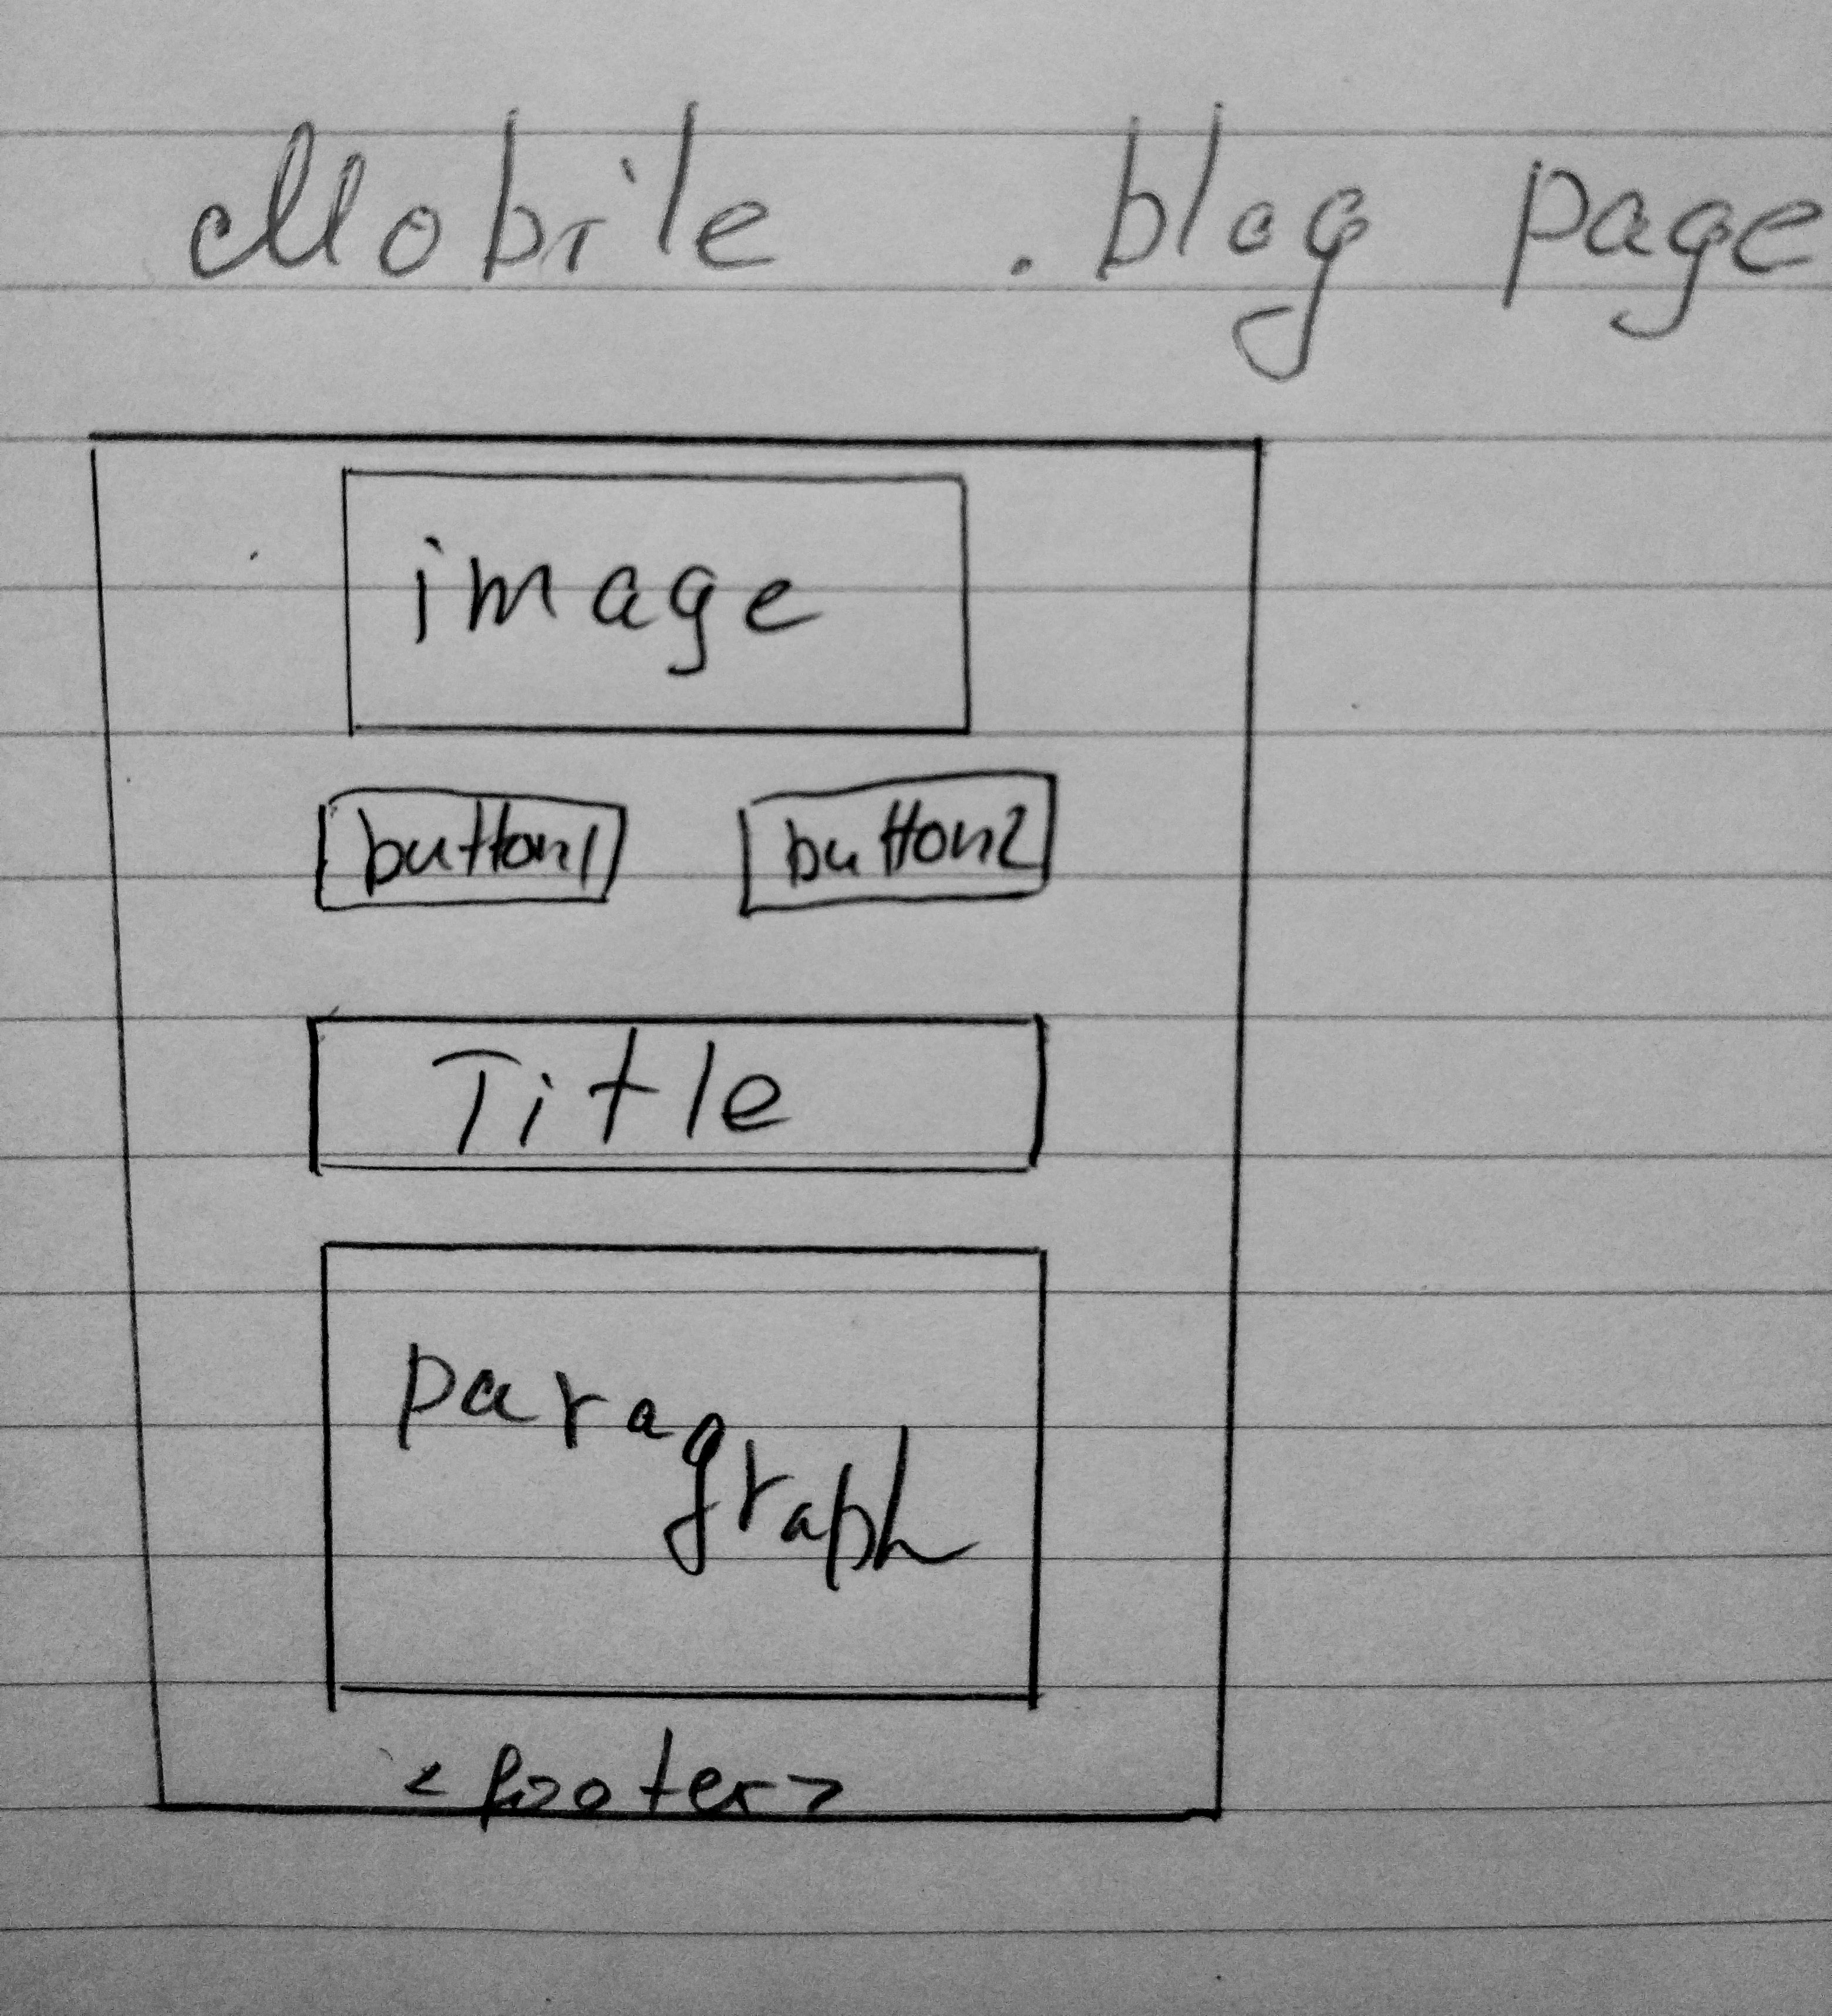 Mobile . blog page
image
button1 button2
Title
paragraph
<footer>